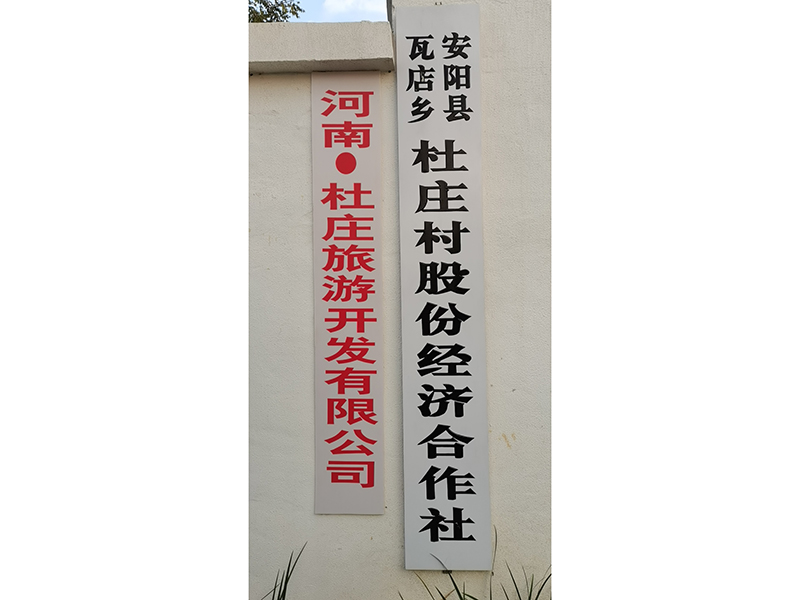 安阳县
瓦店乡
杜庄村股份经济合作社
河南●杜庄旅游开发有限公司